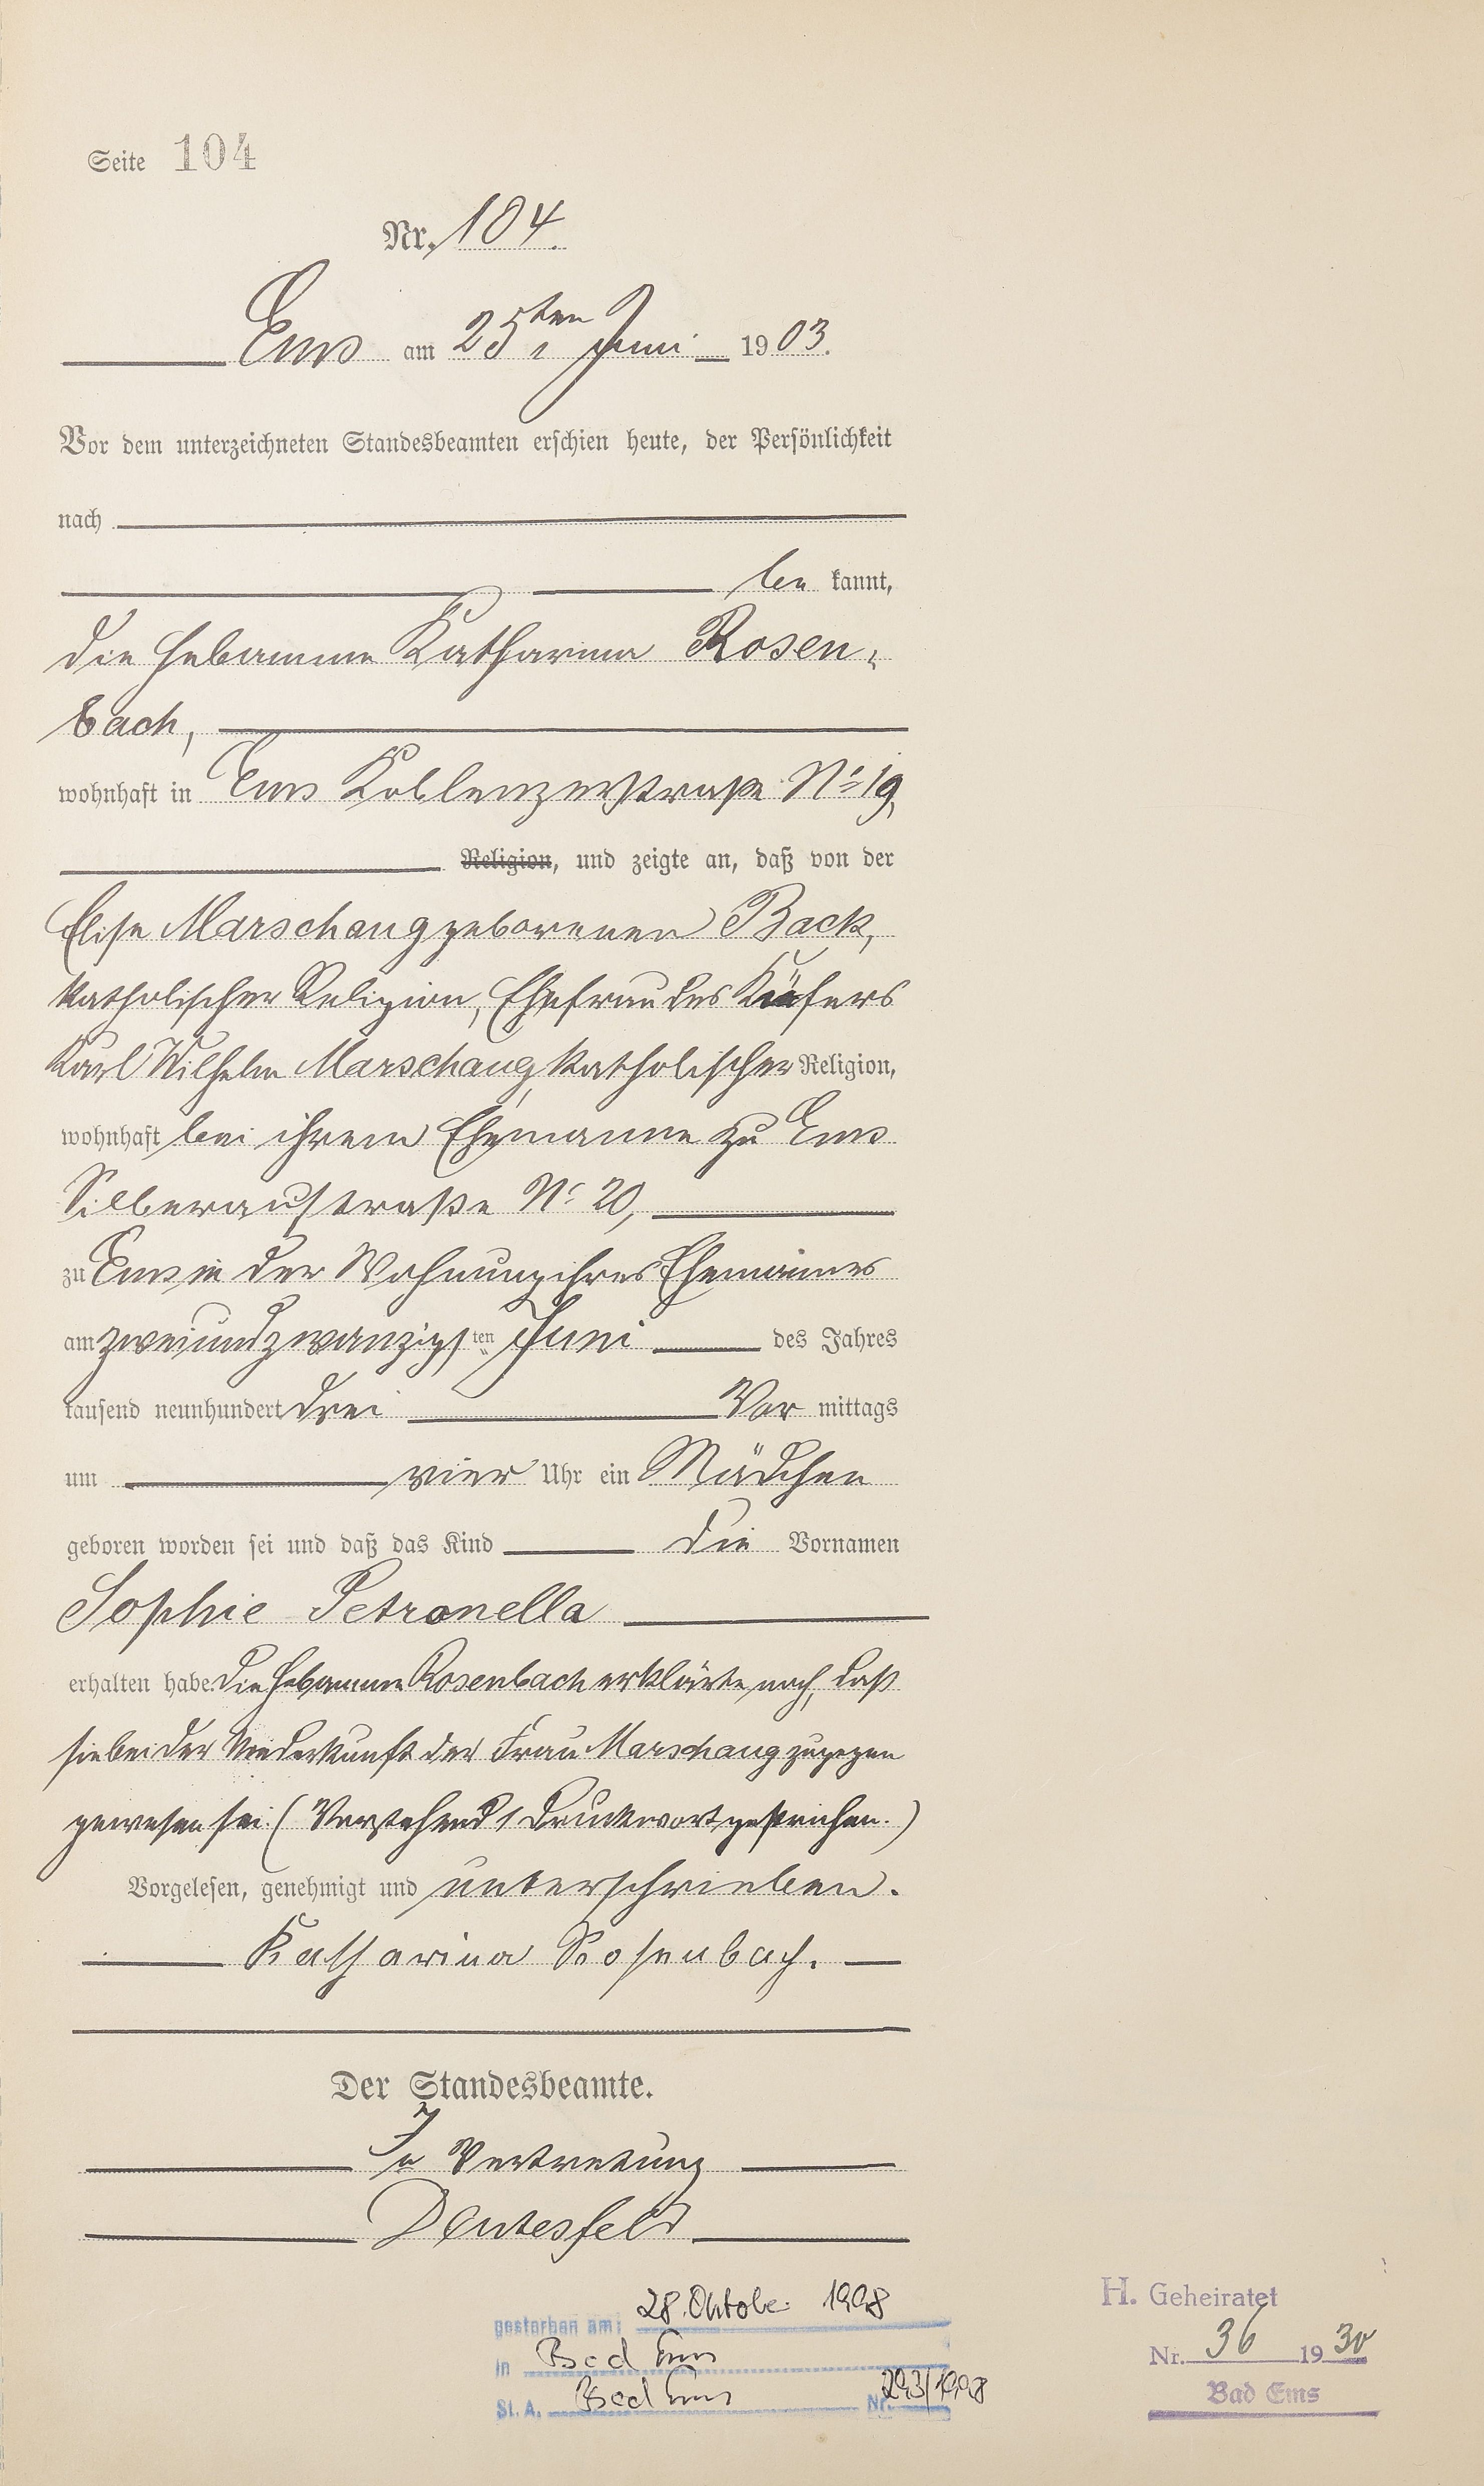 Seite 104
Nr. 104.
Ems am 25ten Juni 1903.
Vor dem unterzeichneten Standesbeamten erschien heute, der Persönlichkeit
nach
be kannt,
die Hebamme Katharina Rosen-
bach,
wohnhaft in Ems Koblenzerstraße No 19,
Religion, und zeigte an, daß von der
Elise Marschang geborenen Back,
katholischer Religion, Ehefrau des Küfers
Karl Wilhelm Marschang, katholischer Religion,
wohnhaft bei ihrem Ehemanne zu Ems
Silberaustraße No 20,
zu Ems in der Wohnung ihres Ehemannes
am zweiundzwanzigsten Juni des Jahres
tausend neunhundert drei Vor mittags
um vier Uhr ein Mädchen
geboren worden sei und daß das Kind die Vornamen
Sophie Petronella
erhalten habe. Die Hebamme Rosenbach erklärte noch, daß
sie bei der Niederkunft der Frau Marschang zugegen
gewesen sei. (Vorstehend 1 Druckwort gestrichen.)
Vorgelesen, genehmigt und unterschrieben.
Katharina Rosenbach.
Der Standesbeamte.
In Vertretung
Dentesfeld
gestorben am: 28. Oktober 1998
in Bad Ems
St. A. Bad Ems Nr. 293/1998
H. Geheiratet
Nr. 36 1930
Bad Ems